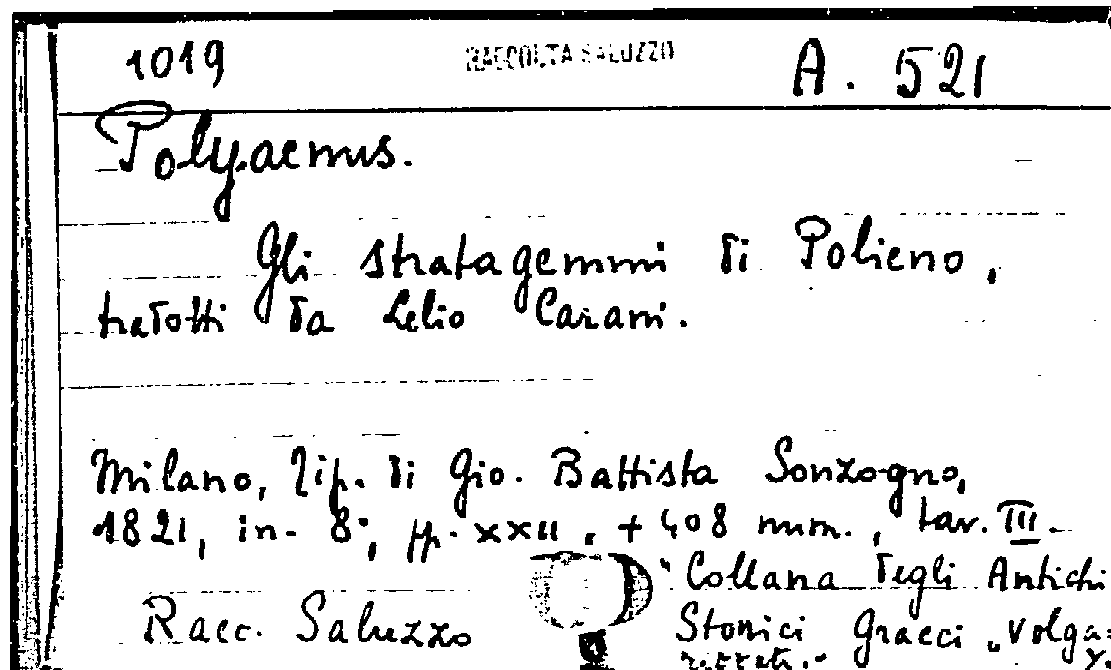 1019 RACCOLTA SALUZZO A. 521
Polyaenus.
Gli stratagemmi di Polieno,
tradotti da Lelio Carani.
Milano, Tip. di Gio. Battista Sonzogno,
1821, in-8°, pp. XXII. + 408 num., tav. III.
"Collana degli Antichi
Racc. Saluzzo Storici Graeci volga-
rizzati."